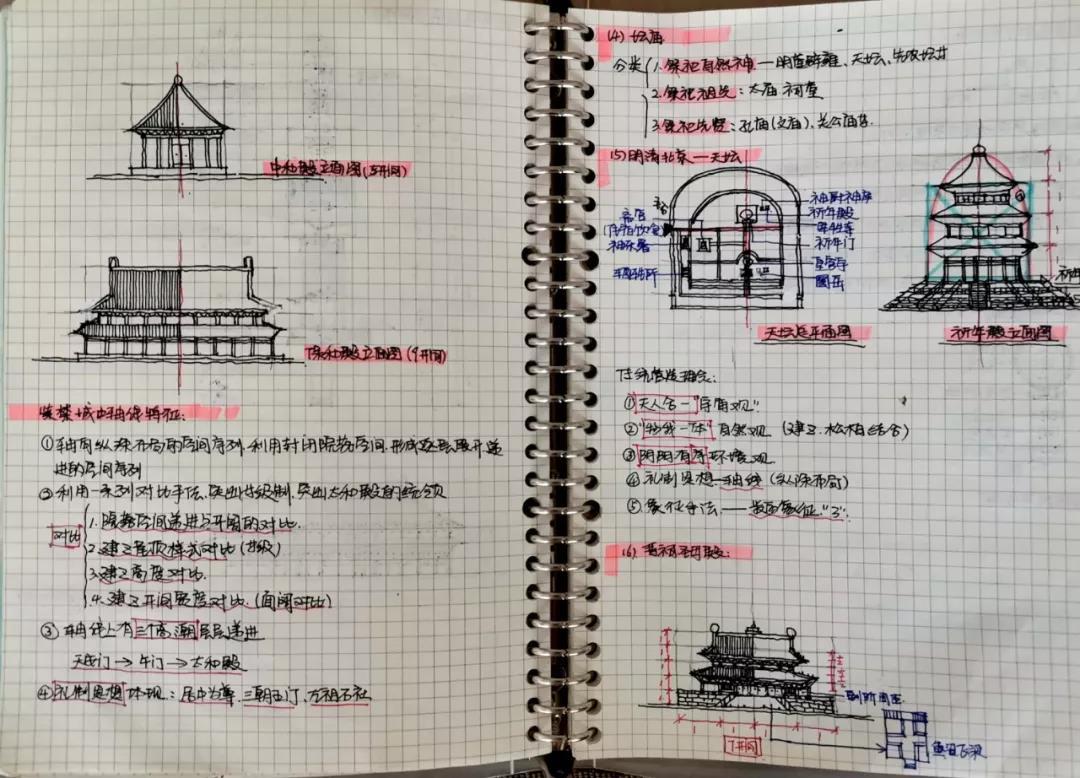 中和殿立面图(3开间)
保和殿立面图(9开间)
紫禁城中轴线特征:
①轴向纵深布局的空间序列,利用封闭院落空间,形成逐层展开递
进的空间序列
②利用一系列对比手法,突出等级制,突出太和殿的统领
对比
1.院落空间递进与开阖的对比.
2.建筑屋顶样式对比(等级)
3.建筑高度对比.
4.建筑开间宽度对比.(面阔对比)
③轴线上有三个高潮层层递进
天安门→午门→太和殿
④礼制思想体现:居中为尊.三朝五门.左祖右社
(4)坛庙
分类
1.祭祀自然神.—明堂辟雍、天坛、先农坛等
2.祭祀祖先:太庙.祠堂
3.祭祀先贤:孔庙(文庙).关公庙等.
(5)明清北京—天坛
斋宫
神乐署
牺牲所
神厨神库
祈年殿
宰牲亭
祈年门
皇穹宇
圜丘
天坛总平面图
祈年殿立面图
传统营造理念:
①天人合一"宇宙观".
②"物我一体"自然观(建筑.松柏结合)
③阴阳有序环境观
④礼制思想—轴线(纵深布局)
⑤象征手法——数字象征"3".
(6)晋祠圣母殿:
副阶周匝
7开间
鱼沼飞梁